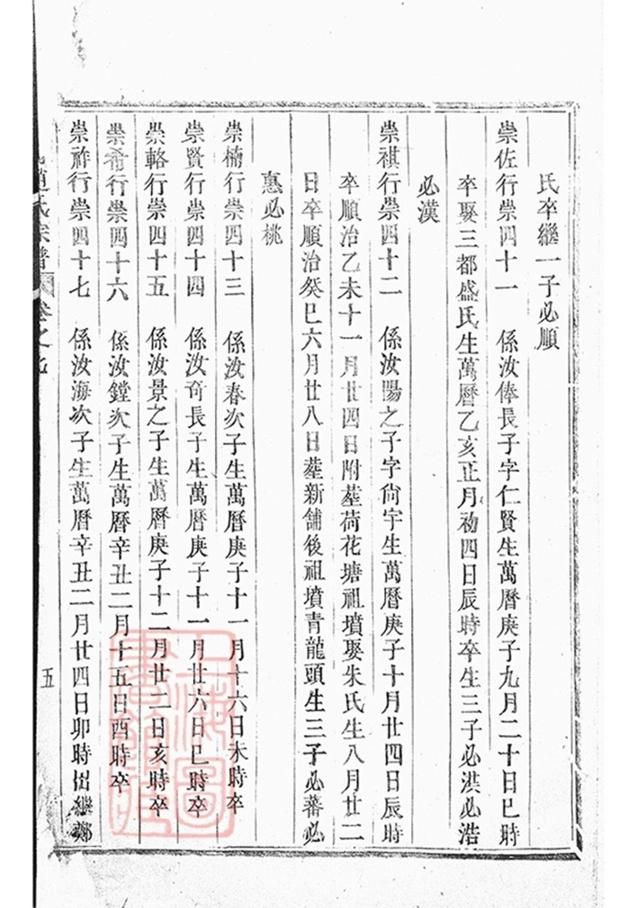 氏卒繼一子必順
崇佐行崇四十一 係汝俸長子字仁賢生萬曆庚子九月二十日巳時
卒娶三都盛氏生萬曆乙亥正月初四日辰時卒生三子必洪必浩
必漢
崇祺行崇四十二 係汝陽之子字尙宇生萬曆庚子十月廿四日辰時
卒順治乙未十一月廿四日附葬荷花塘祖墳娶朱氏生八月廿二
日卒順治癸巳六月廿八日葬新舖後祖墳青龍頭生三子必蕃必
惠必桃
崇楠行崇四十三 係汝春次子生萬曆庚子十一月十六日未時卒
崇賢行崇四十四 係汝奇長子生萬曆庚子十一月廿六日巳時卒
崇輅行崇四十五 係汝景之子生萬曆庚子十二月廿二日亥時卒
崇希行崇四十六 係汝鏜次子生萬曆辛丑二月十五日酉時卒
崇祥行崇四十七 係汝海次子生萬曆辛丑二月廿四日卯時出繼鄭
趙氏宗譜 卷之九 五
上海圖書館藏